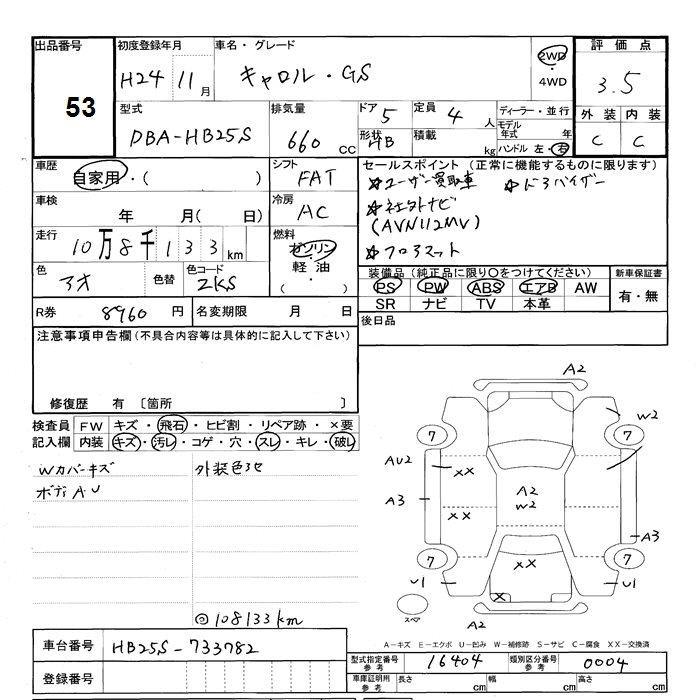 出品番号 初度登録年月 車名・グレード 評価点
53 H24 11月 キャロル・GS 2WD 4WD 3.5
型式 排気量 ドア 5 定員 4人 ディーラー・並行 外装 内装
DBA-HB25S 660cc 形状 HB 積載 kg モデル年式 年 C C
ハンドル 左・右
車歴 自家用・( ) シフト FAT セールスポイント (正常に機能するものに限ります)
☆ユーザー買取車 ☆ドアバイザー
車検 年 月( 日) 冷房 AC ☆社外ナビ
(AVN112MV)
走行 10万8千133km 燃料 ガソリン・軽油・( ) ☆フロアマット
色 アオ 色替 色コード ZKS 装備品 (純正品に限り○をつけてください) 新車保証書
PS PW ABS エアB AW 有・無
SR ナビ TV 本革
R券 8960円 名変期限 月 日 後日品
注意事項申告欄(不具合内容等は具体的に記入して下さい)
修復歴 有 〔箇所 〕
検査員 FW キズ・飛石・ヒビ割・リペア跡・×要
記入欄 内装 キズ・汚レ・コゲ・穴・スレ・キレ・破レ
Wカバーキズ 外装色アセ
ボディAU
◎108133km
A2
W2
7 7
AU2 XX
A2
W2
A3 XX A3
7 7
XX
U1 U1
X
スペア A2
A-キズ E-エクボ U-凹み W-補修跡 S-サビ C-腐食 XX-交換済
車台番号 HB25S-733782
型式指定番号 参考 16404 類別区分番号 参考 0004
登録番号 車庫証明用 参考 長さ cm 幅 cm 高さ cm